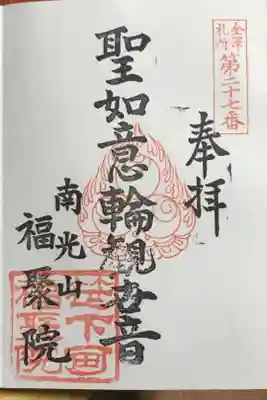 金澤
札所
第二十七番
奉拝
聖如意輪観世音
南光山
福聚院